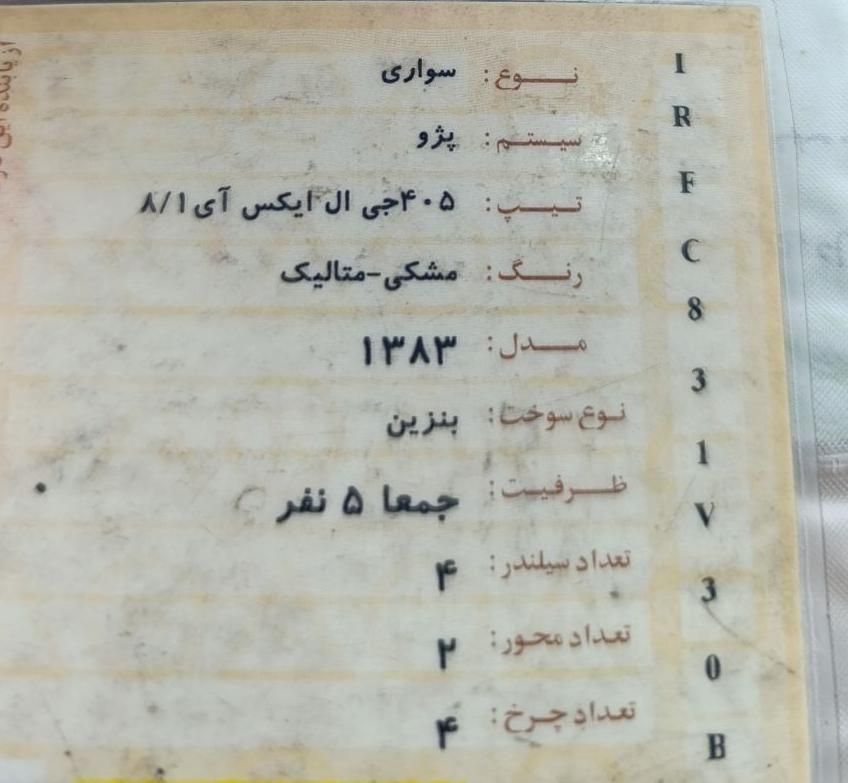 نوع: سواری
سیستم: پژو
تیپ: ۴۰۵جی ال ایکس آی۸/۱
رنگ: مشکی-متالیک
مدل: ۱۳۸۳
نوع سوخت: بنزین
ظرفیت: جمعا ۵ نفر
تعداد سیلندر: ۴
تعداد محور: ۲
تعداد چرخ: ۴
I
R
F
C
8
3
1
V
3
0
B